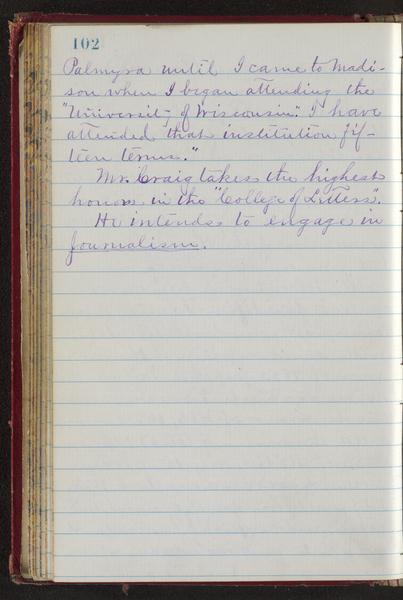 102
Palmyra until I came to Madi-
son when I began attending the
"University of Wisconsin". I have
attended that institution fif-
teen terms."
Mr. Craig takes the highest
honors in the "College of Letters".
He intends to engage in
journalism.